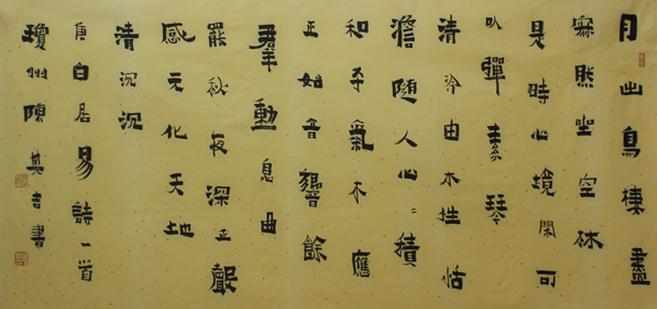 月出鳥棲盡
寂然坐空林
是時心境閑可
以彈素琴
清泠由木性恬
澹隨人心〻積
和平氣木應
正始音響餘
羣動息曲
罷秋夜深正聲
感元化天地
清沉沉
唐白居易詩一首
瓊州陳英書